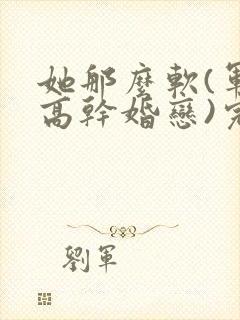 她那麼軟(軍
高幹婚戀)完
劉軍